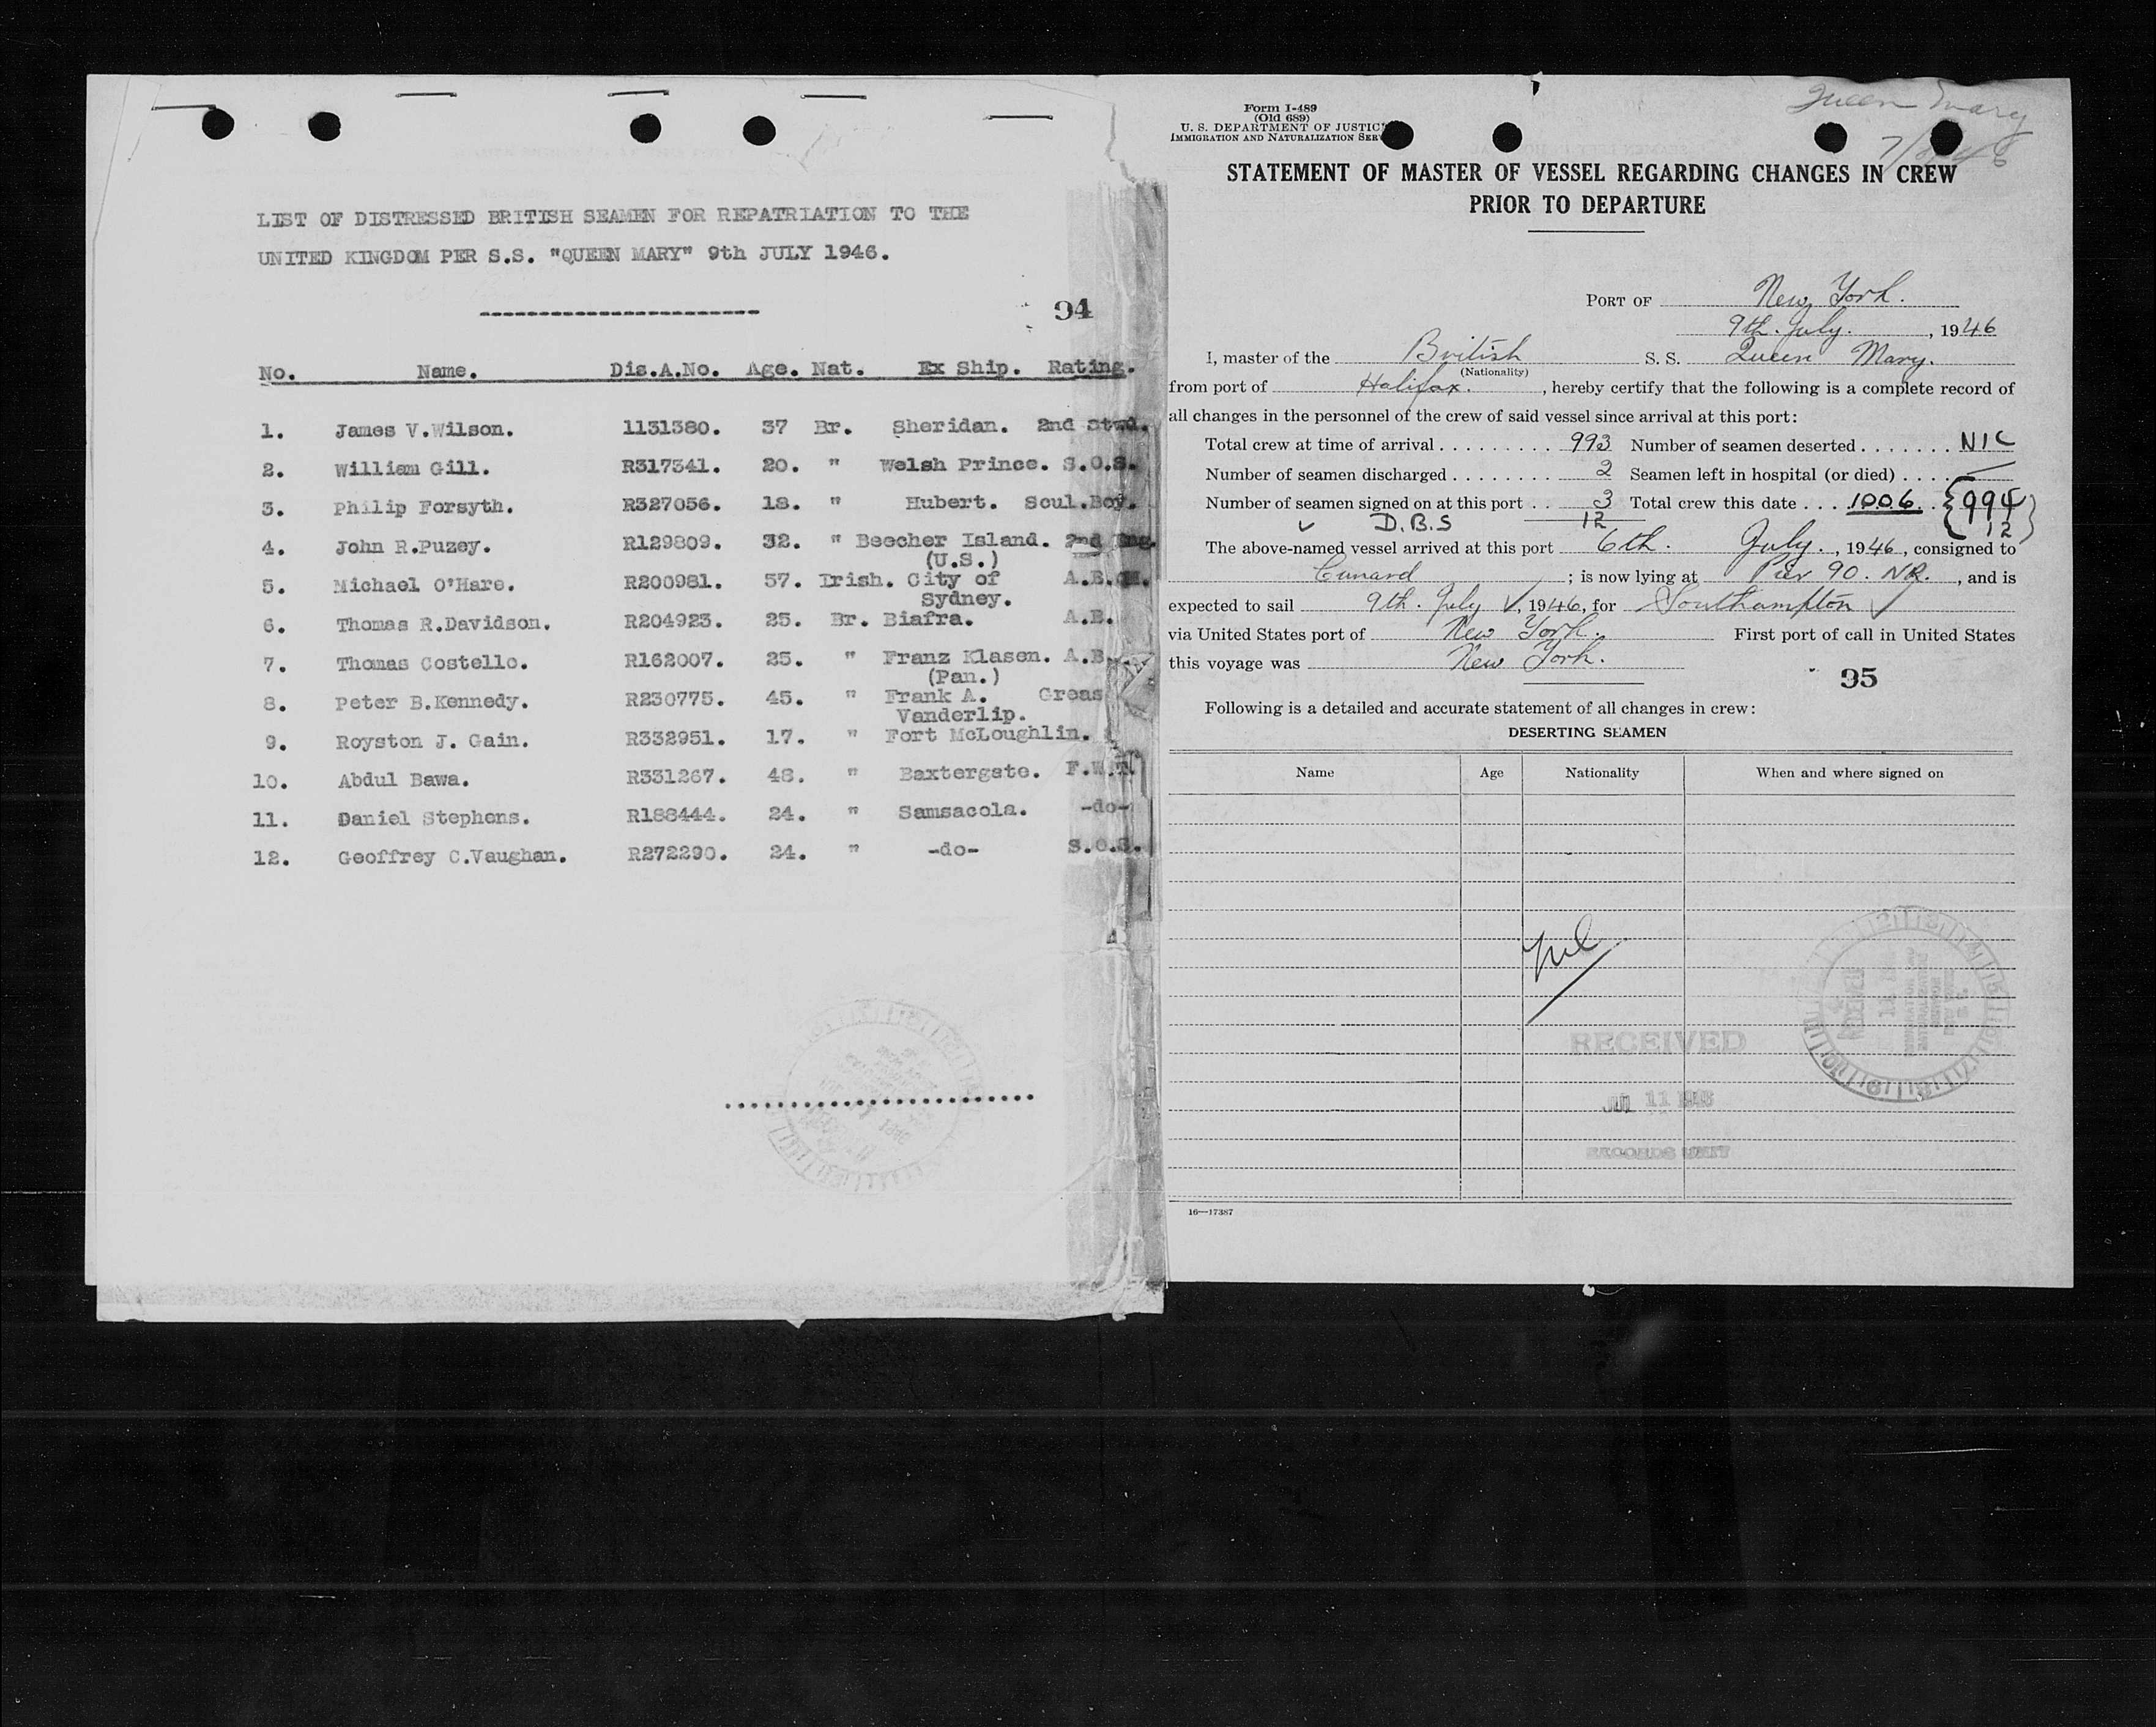 LIST OF DISTRESSED BRITISH SEAMEN FOR REPATRIATION TO THE
UNITED KINGDOM PER S.S. "QUEEN MARY" 9th JULY 1946.
94
No. Name. Dis.A.No. Age. Nat. Ex Ship. Rating.
1. James V.Wilson. 1131380. 37 Br. Sheridan. 2nd Stwd.
2. William Gill. R317341. 20. " Welsh Prince. S.O.S.
3. Philip Forsyth. R327056. 18. " Hubert. Scul.Boy.
4. John R.Puzey. R129809. 32. " Beecher Island. 2nd Eng.
(U.S.)
5. Michael O'Hare. R200981. 57. Irish. City of A.B.
Sydney.
6. Thomas R.Davidson. R204923. 25. Br. Biafra. A.B.
7. Thomas Costello. R162007. 25. " Franz Klasen. A.B.
(Pan.)
8. Peter B.Kennedy. R230775. 45. " Frank A. Greas
Vanderlip.
9. Royston J. Gain. R332951. 17. " Fort McLoughlin.
10. Abdul Bawa. R331267. 48. " Baxtergate. F.W.T.
11. Daniel Stephens. R188444. 24. " Samsacola. -do-
12. Geoffrey C.Vaughan. R272290. 24. " -do- S.O.S.
Queen Mary
Form I-489
(Old 689)
U. S. DEPARTMENT OF JUSTIC
IMMIGRATION AND NATURALIZATION SER
STATEMENT OF MASTER OF VESSEL REGARDING CHANGES IN CREW
PRIOR TO DEPARTURE
PORT OF New York.
9th. July. , 1946
I, master of the British S. S. Queen Mary.
(Nationality)
from port of Halifax. , hereby certify that the following is a complete record of
all changes in the personnel of the crew of said vessel since arrival at this port:
Total crew at time of arrival . . . . . . . . . 993 Number of seamen deserted . . . . . . . NIL
Number of seamen discharged . . . . . . . 2 Seamen left in hospital (or died) . . . . —
Number of seamen signed on at this port . . 3 Total crew this date . . . 1006 . . { 994
D.B.S 12 12 }
The above-named vessel arrived at this port 6th. July. , 1946 , consigned to
Cunard ; is now lying at Pier 90. NR. , and is
expected to sail 9th. July , 1946, for Southampton
via United States port of New York. First port of call in United States
this voyage was New York.
95
Following is a detailed and accurate statement of all changes in crew:
DESERTING SEAMEN
Name Age Nationality When and where signed on
Nil
RECEIVED
JUL 11 1946
RECORDS UNIT
16—17387